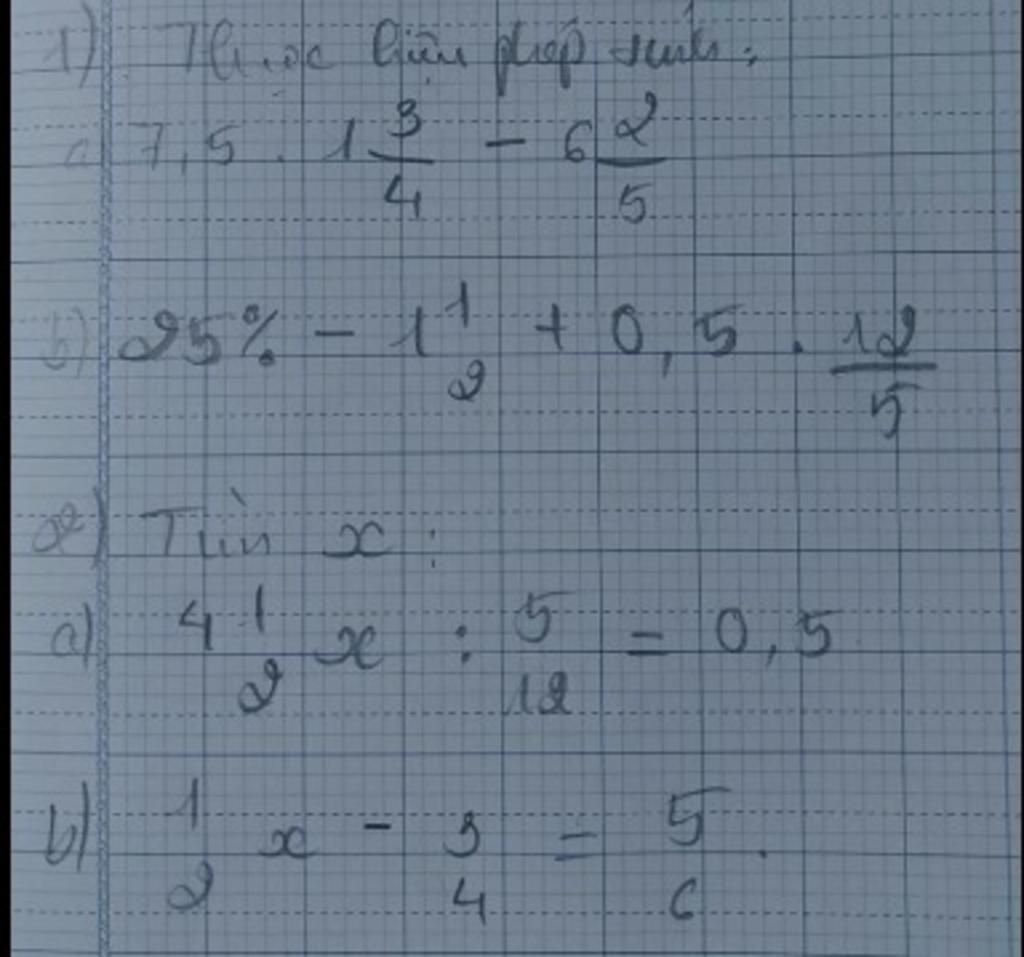 1) Thực hiện phép tính:
a) 7,5 . 1 3/4 - 6 2/5
b) 25% - 1 1/2 + 0,5 . 12/5
2) Tìm x:
a) 4 1/2 x : 5/12 = 0,5
b) 1/2 x - 3/4 = 5/6.